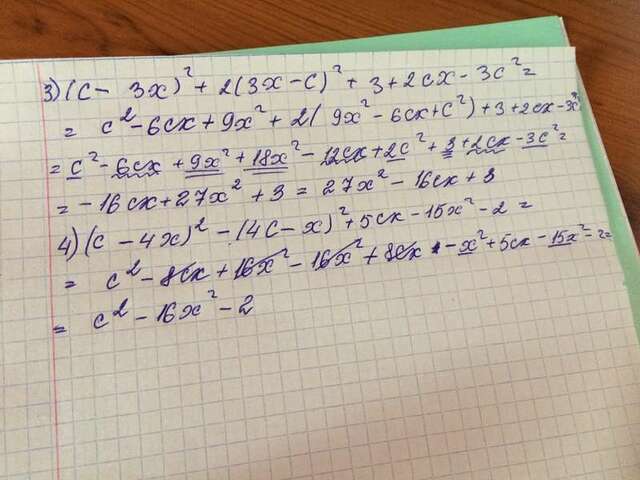 3) (c - 3x)² + 2(3x - c)² + 3 + 2cx - 3c² =
= c² - 6cx + 9x² + 2(9x² - 6cx + c²) + 3 + 2cx - 3c²
= c² - 6cx + 9x² + 18x² - 12cx + 2c² + 3 + 2cx - 3c² =
= - 16cx + 27x² + 3 = 27x² - 16cx + 3
4) (c - 4x)² - (4c - x)² + 5cx - 15x² - 2 =
= c² - 8cx + 16x² - 16x² + 8cx - x² + 5cx - 15x² - 2 =
= c² - 16x² - 2